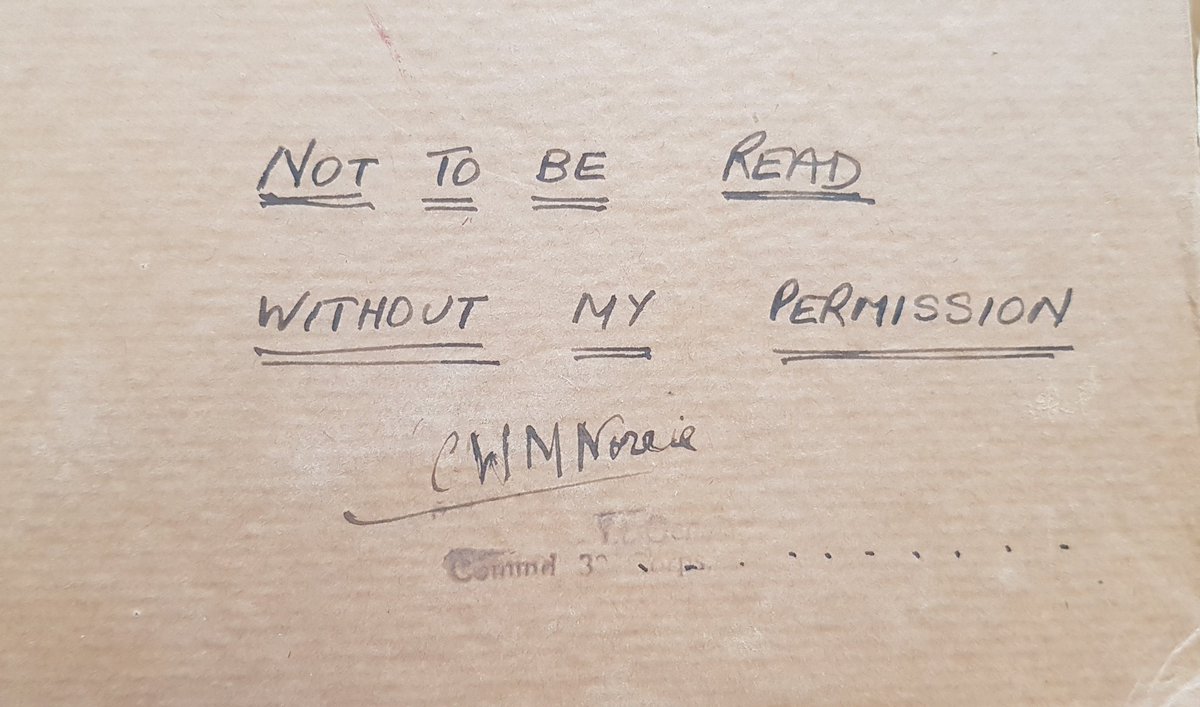 NOT TO BE READ
WITHOUT MY PERMISSION
CWM Norrie
Commd 30 Corps.